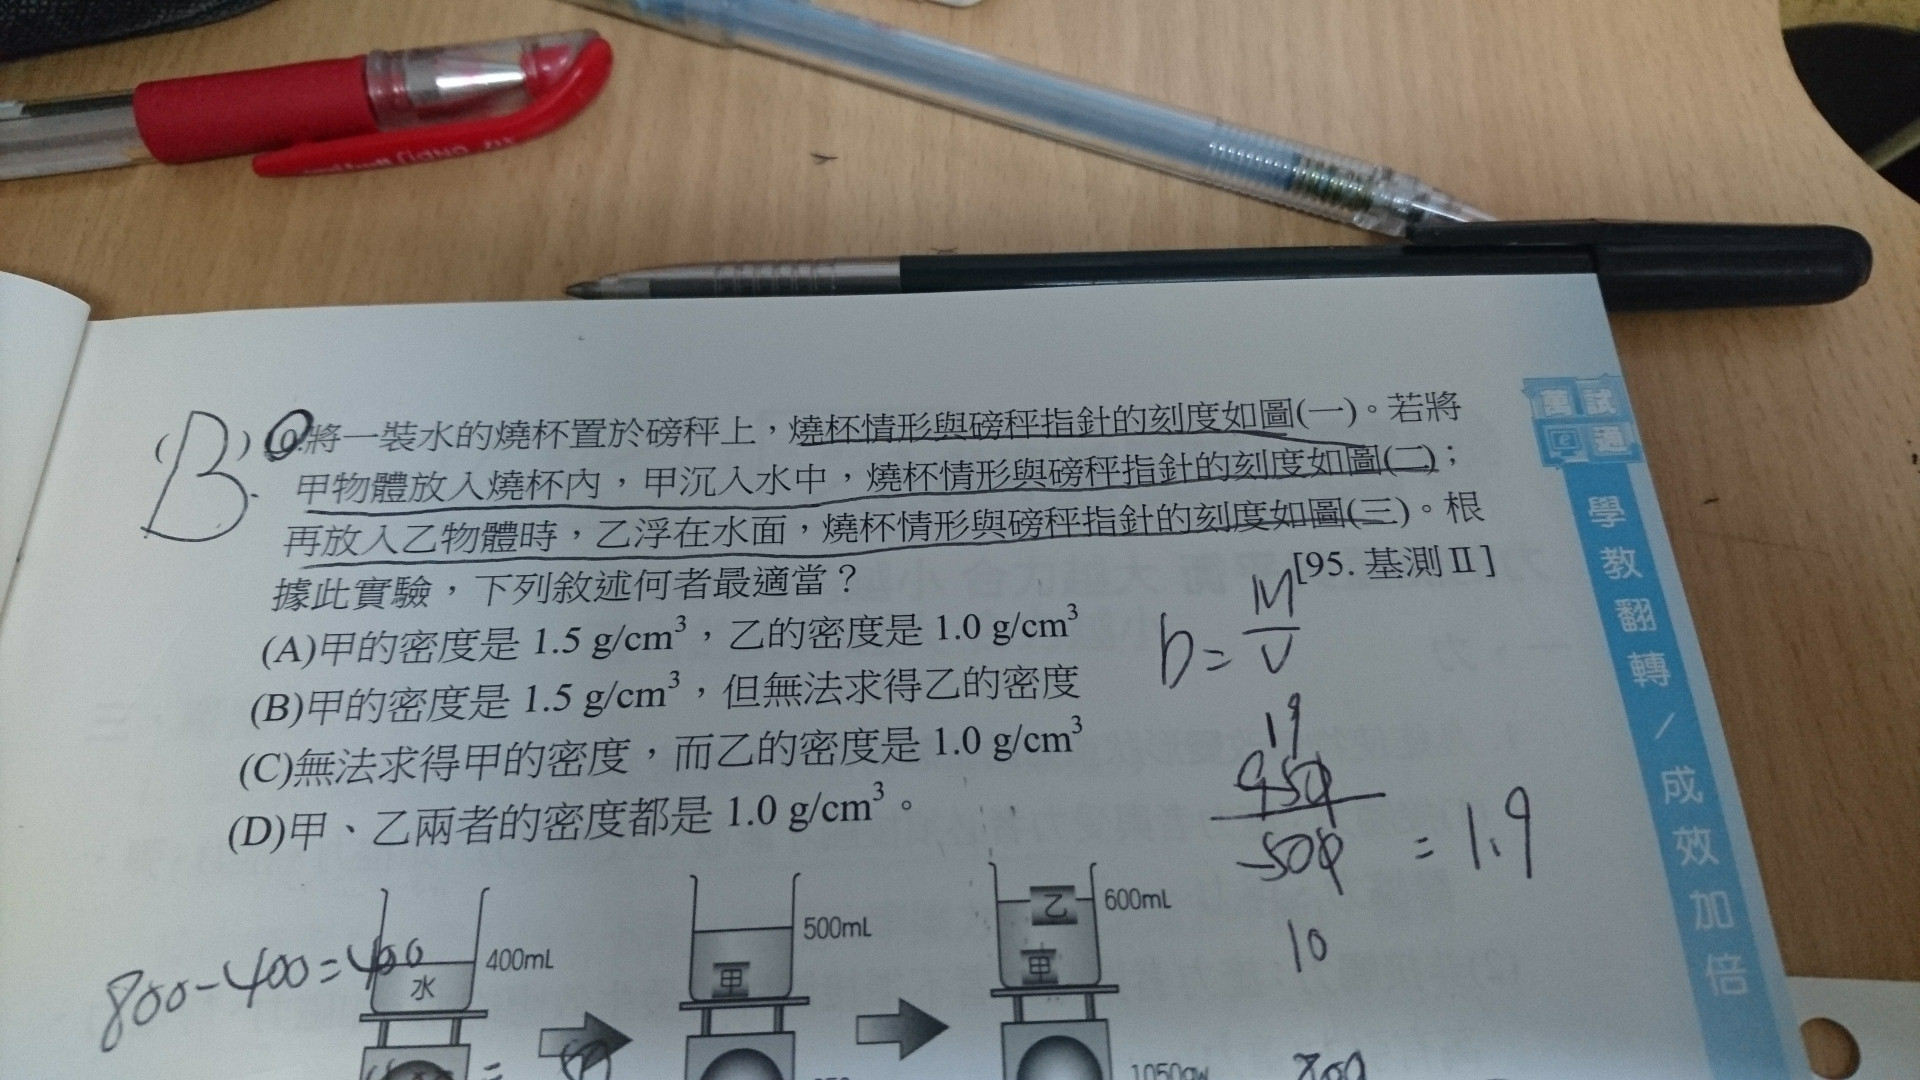 (B)
將一裝水的燒杯置於磅秤上，燒杯情形與磅秤指針的刻度如圖(一)。若將
甲物體放入燒杯內，甲沉入水中，燒杯情形與磅秤指針的刻度如圖(二)；
再放入乙物體時，乙浮在水面，燒杯情形與磅秤指針的刻度如圖(三)。根
據此實驗，下列敘述何者最適當？
[95. 基測Ⅱ]
(A)甲的密度是 1.5 g/cm³，乙的密度是 1.0 g/cm³
(B)甲的密度是 1.5 g/cm³，但無法求得乙的密度
(C)無法求得甲的密度，而乙的密度是 1.0 g/cm³
(D)甲、乙兩者的密度都是 1.0 g/cm³。
D=M/V
19
950
500
= 1.9
10
800-400=400
400mL
水
500mL
甲
600mL
乙
甲
1050gw
800
萬試
e通
學教翻轉／成效加倍